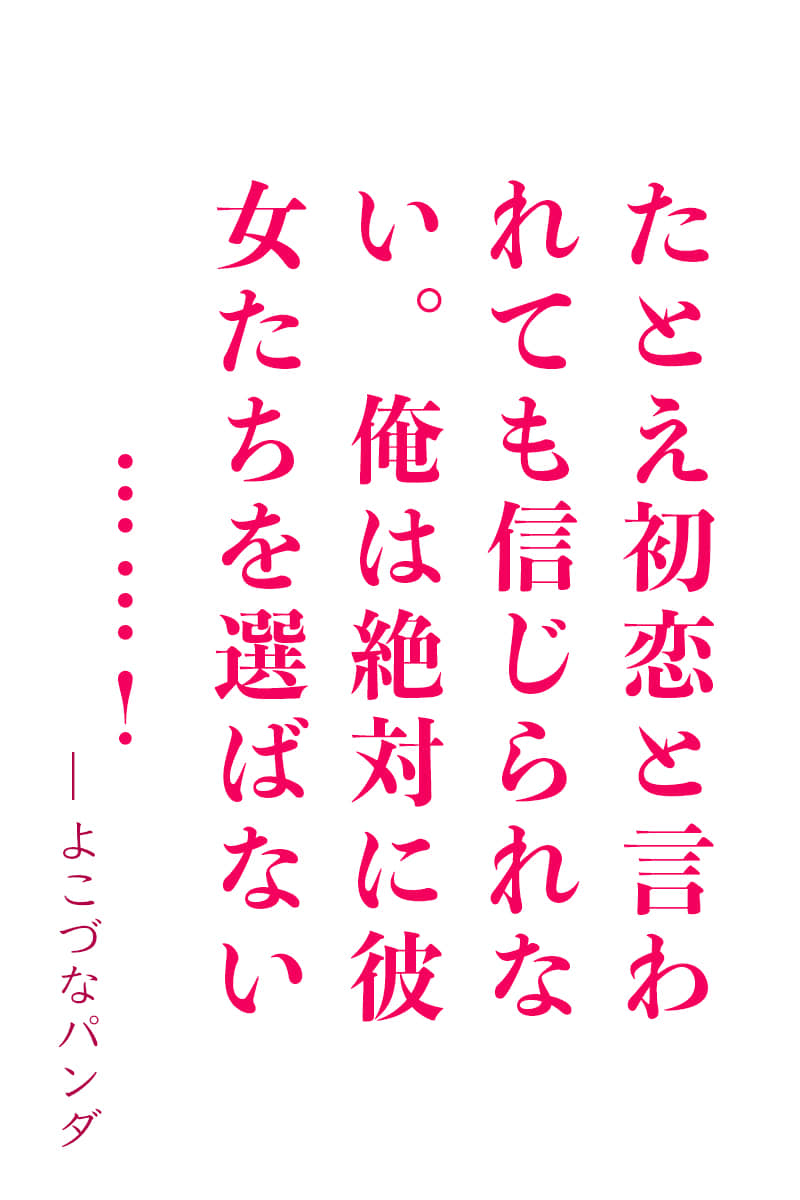 たとえ初恋と言わ
れても信じられな
い。俺は絶対に彼
女たちを選ばない
……！
—よこづなパンダ